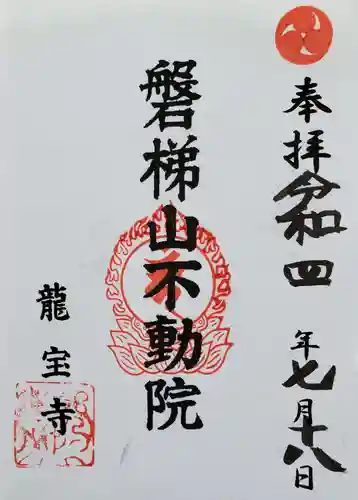 奉拝 令和四年七月十八日
磐梯山不動院
龍宝寺